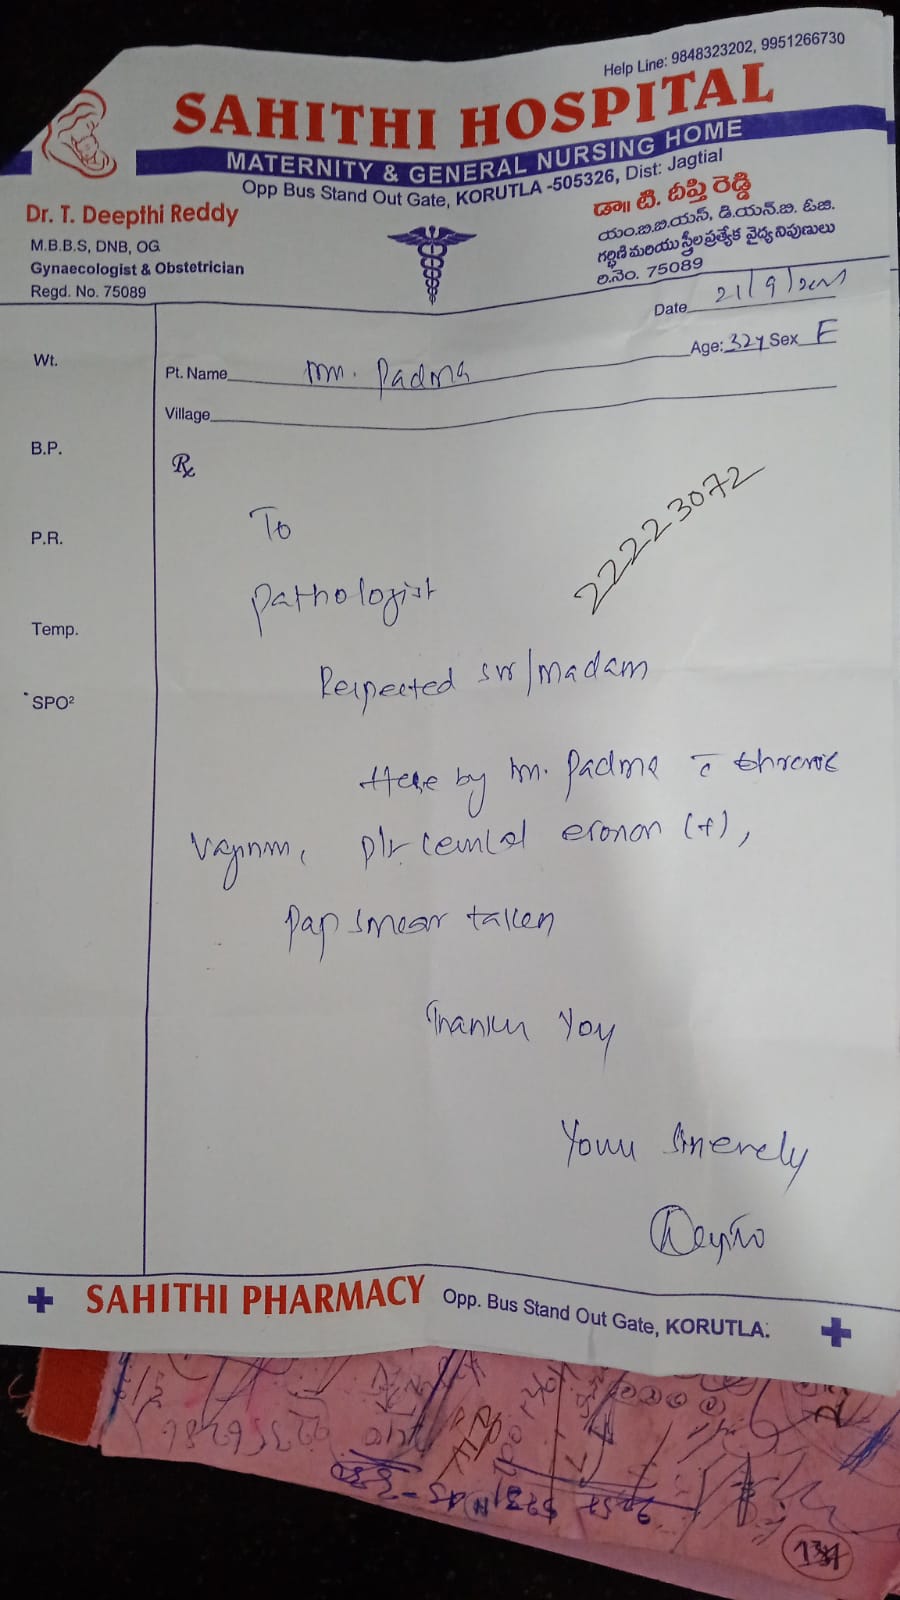 Help Line: 9848323202, 9951266730
SAHITHI HOSPITAL
MATERNITY & GENERAL NURSING HOME
Opp Bus Stand Out Gate, KORUTLA -505326, Dist: Jagtial
Dr. T. Deepthi Reddy
M.B.B.S, DNB, OG
Gynaecologist & Obstetrician
Regd. No. 75089
డా॥ టి. దీప్తి రెడ్డి
యం.బి.బి.యస్, డి.యన్.బి. ఓ.జి.
గర్భిణి మరియు స్త్రీల ప్రత్యేక వైద్య నిపుణులు
రి.నెం. 75089
Date 21/9/
Age: 32y Sex F
Pt. Name Padma
Village
Wt.
B.P.
P.R.
Temp.
SPO²
Rx
To
pathologist
22223072
Respected sir/madam
Here by Padma c̄ chronic
cervical erosion (+),
pap smear taken
Thanking You
Yours Sincerely
+ SAHITHI PHARMACY Opp. Bus Stand Out Gate, KORUTLA. +